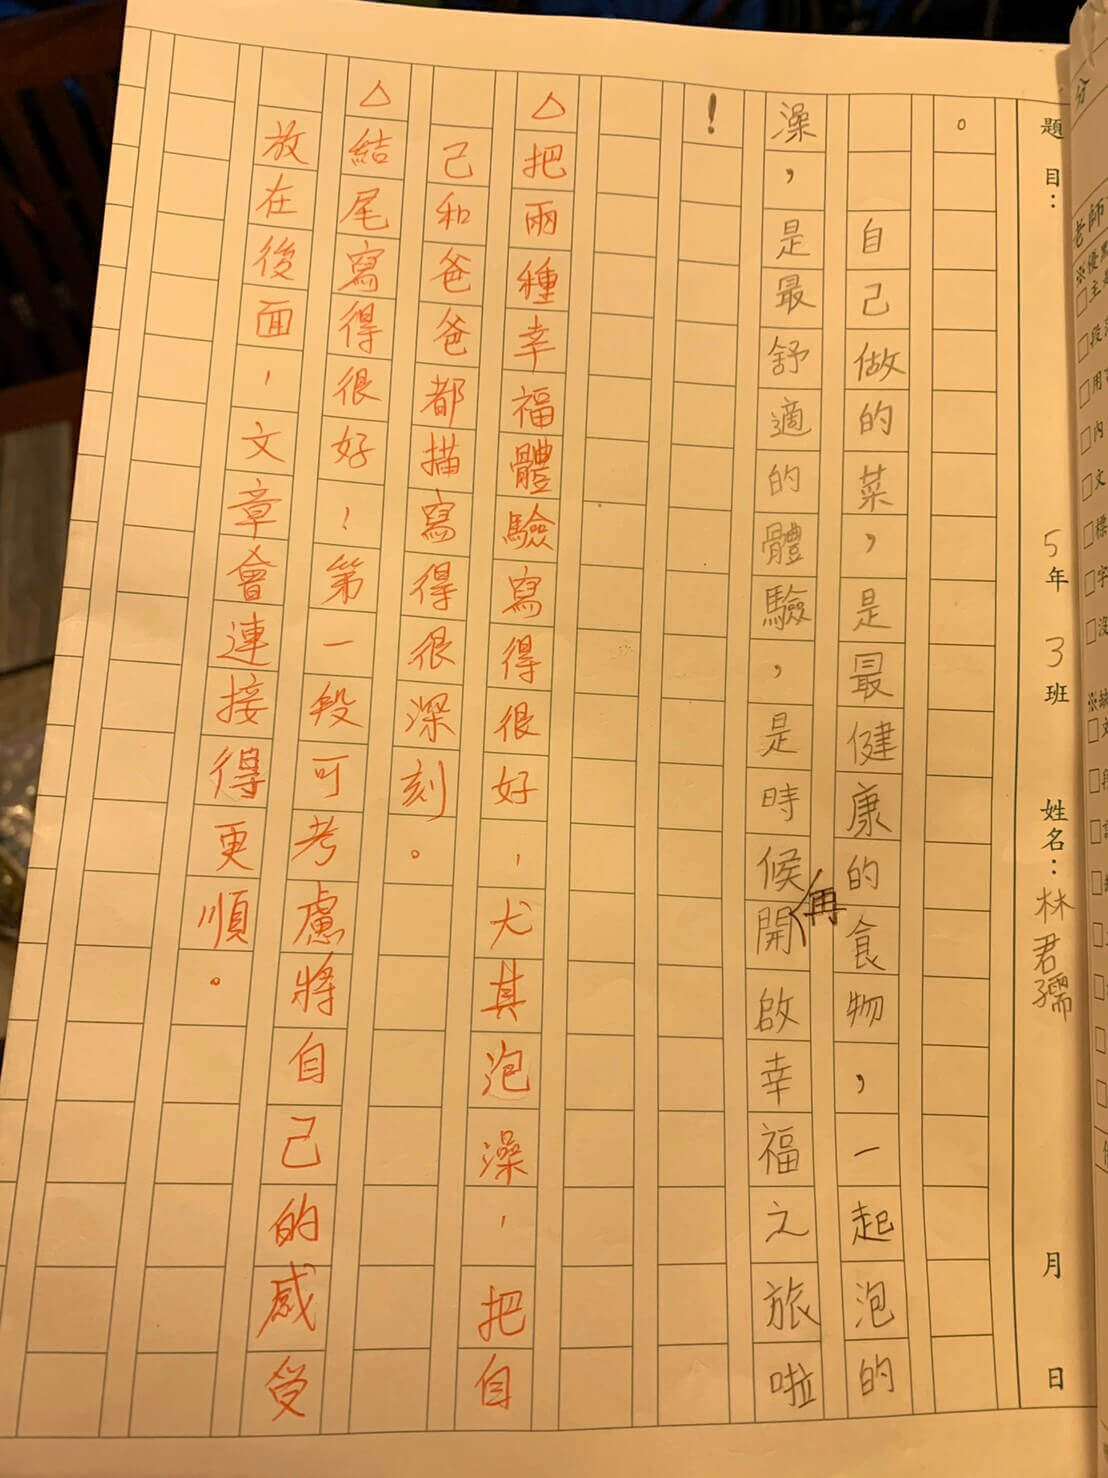 題目：
5年3班
姓名：林君孺
月
日
。
自己做的菜，是最健康的食物，一起泡的
澡，是最舒適的體驗，是時候開啟幸福之旅啦
再
！
△把兩種幸福體驗寫得很好，尤其泡澡，把自
己和爸爸都描寫得很深刻。
△結尾寫得很好！第一段可考慮將自己的感受
放在後面，文章會連接得更順。
分
老師